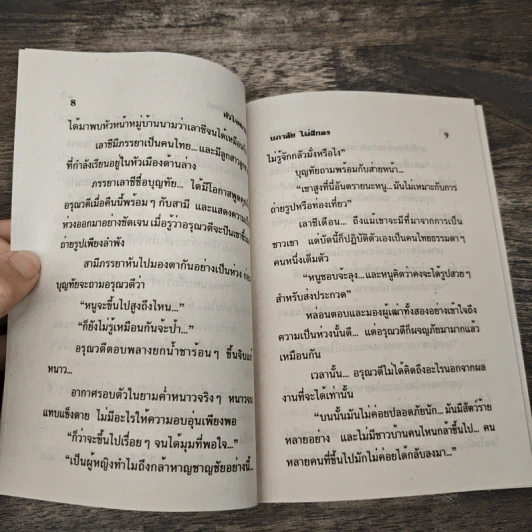 8
ได้มาพบหัวหน้าหมู่บ้านนามว่าเลาซีจนได้เหมือน
เลาซีมีภรรยาเป็นคนไทย... และมีลูกสาว
ที่กำลังเรียนอยู่ในหัวเมืองด้านล่าง
ภรรยาเลาซีชื่อบุญทัย... ได้มีโอกาสพูด
อรุณวตีเมื่อคืนนี้พร้อม ๆ กับสามี และแสดงความ
ห่วงออกมาอย่างชัดเจน เมื่อรู้ว่าอรุณวตีจะปีนเขาขึ้น
ถ่ายรูปเพียงลำพัง
สามีภรรยาหันไปมองตากันอย่างเป็นห่วง ก่อน
บุญทัยจะถามอรุณวตีว่า
“หนูจะขึ้นไปสูงถึงไหน...”
“ก็ยังไม่รู้เหมือนกันจ้ะป้า...”
อรุณวตีตอบพลางยกน้ำชาร้อน ๆ ขึ้นจิบแก้
หนาว...
อากาศรอบตัวในยามค่ำหนาวจริง ๆ หนาวจน
แทบแข็งตาย ไม่มีอะไรให้ความอบอุ่นเพียงพอ
“ก็ว่าจะขึ้นไปเรื่อย ๆ จนได้มุมที่พอใจ...”
“เป็นผู้หญิงทำไมถึงกล้าหาญชาญชัยอย่างนี้...
นภาลัย ไผ่สีทอง 9
ไม่รู้จักกลัวมั่งหรือไง”
บุญทัยถามพร้อมกับส่ายหน้า...
“เขาสูงที่นี่อันตรายนะหนู... มันไม่เหมาะกับการ
ถ่ายรูปหรือท่องเที่ยว”
เลาซีเตือน... ถึงแม้เขาจะมีที่มาจากการเป็น
ชาวเขา แต่บัดนี้ก็ปฏิบัติตัวเองเป็นคนไทยธรรมดา ๆ
คนหนึ่งเต็มตัว
“หนูชอบจะลุง... และหนูคิดว่าคงจะได้รูปสวย ๆ
สำหรับส่งประกวด”
หล่อนตอบและมองผู้เฒ่าทั้งสองอย่างเข้าใจถึง
ความเป็นห่วงนั้นดี... แต่อรุณวตีก็ผจญภัยมามากแล้ว
เหมือนกัน
เวลานั้น... อรุณวตีไม่ได้คิดถึงอะไรนอกจากผล
งานที่จะได้เท่านั้น
“บนนั้นมันไม่ค่อยปลอดภัยนัก... มันมีสัตว์ร้าย
หลายอย่าง และไม่มีชาวบ้านคนไหนกล้าขึ้นไป... คน
หลายคนที่ขึ้นไปมักไม่ค่อยได้กลับลงมา...”